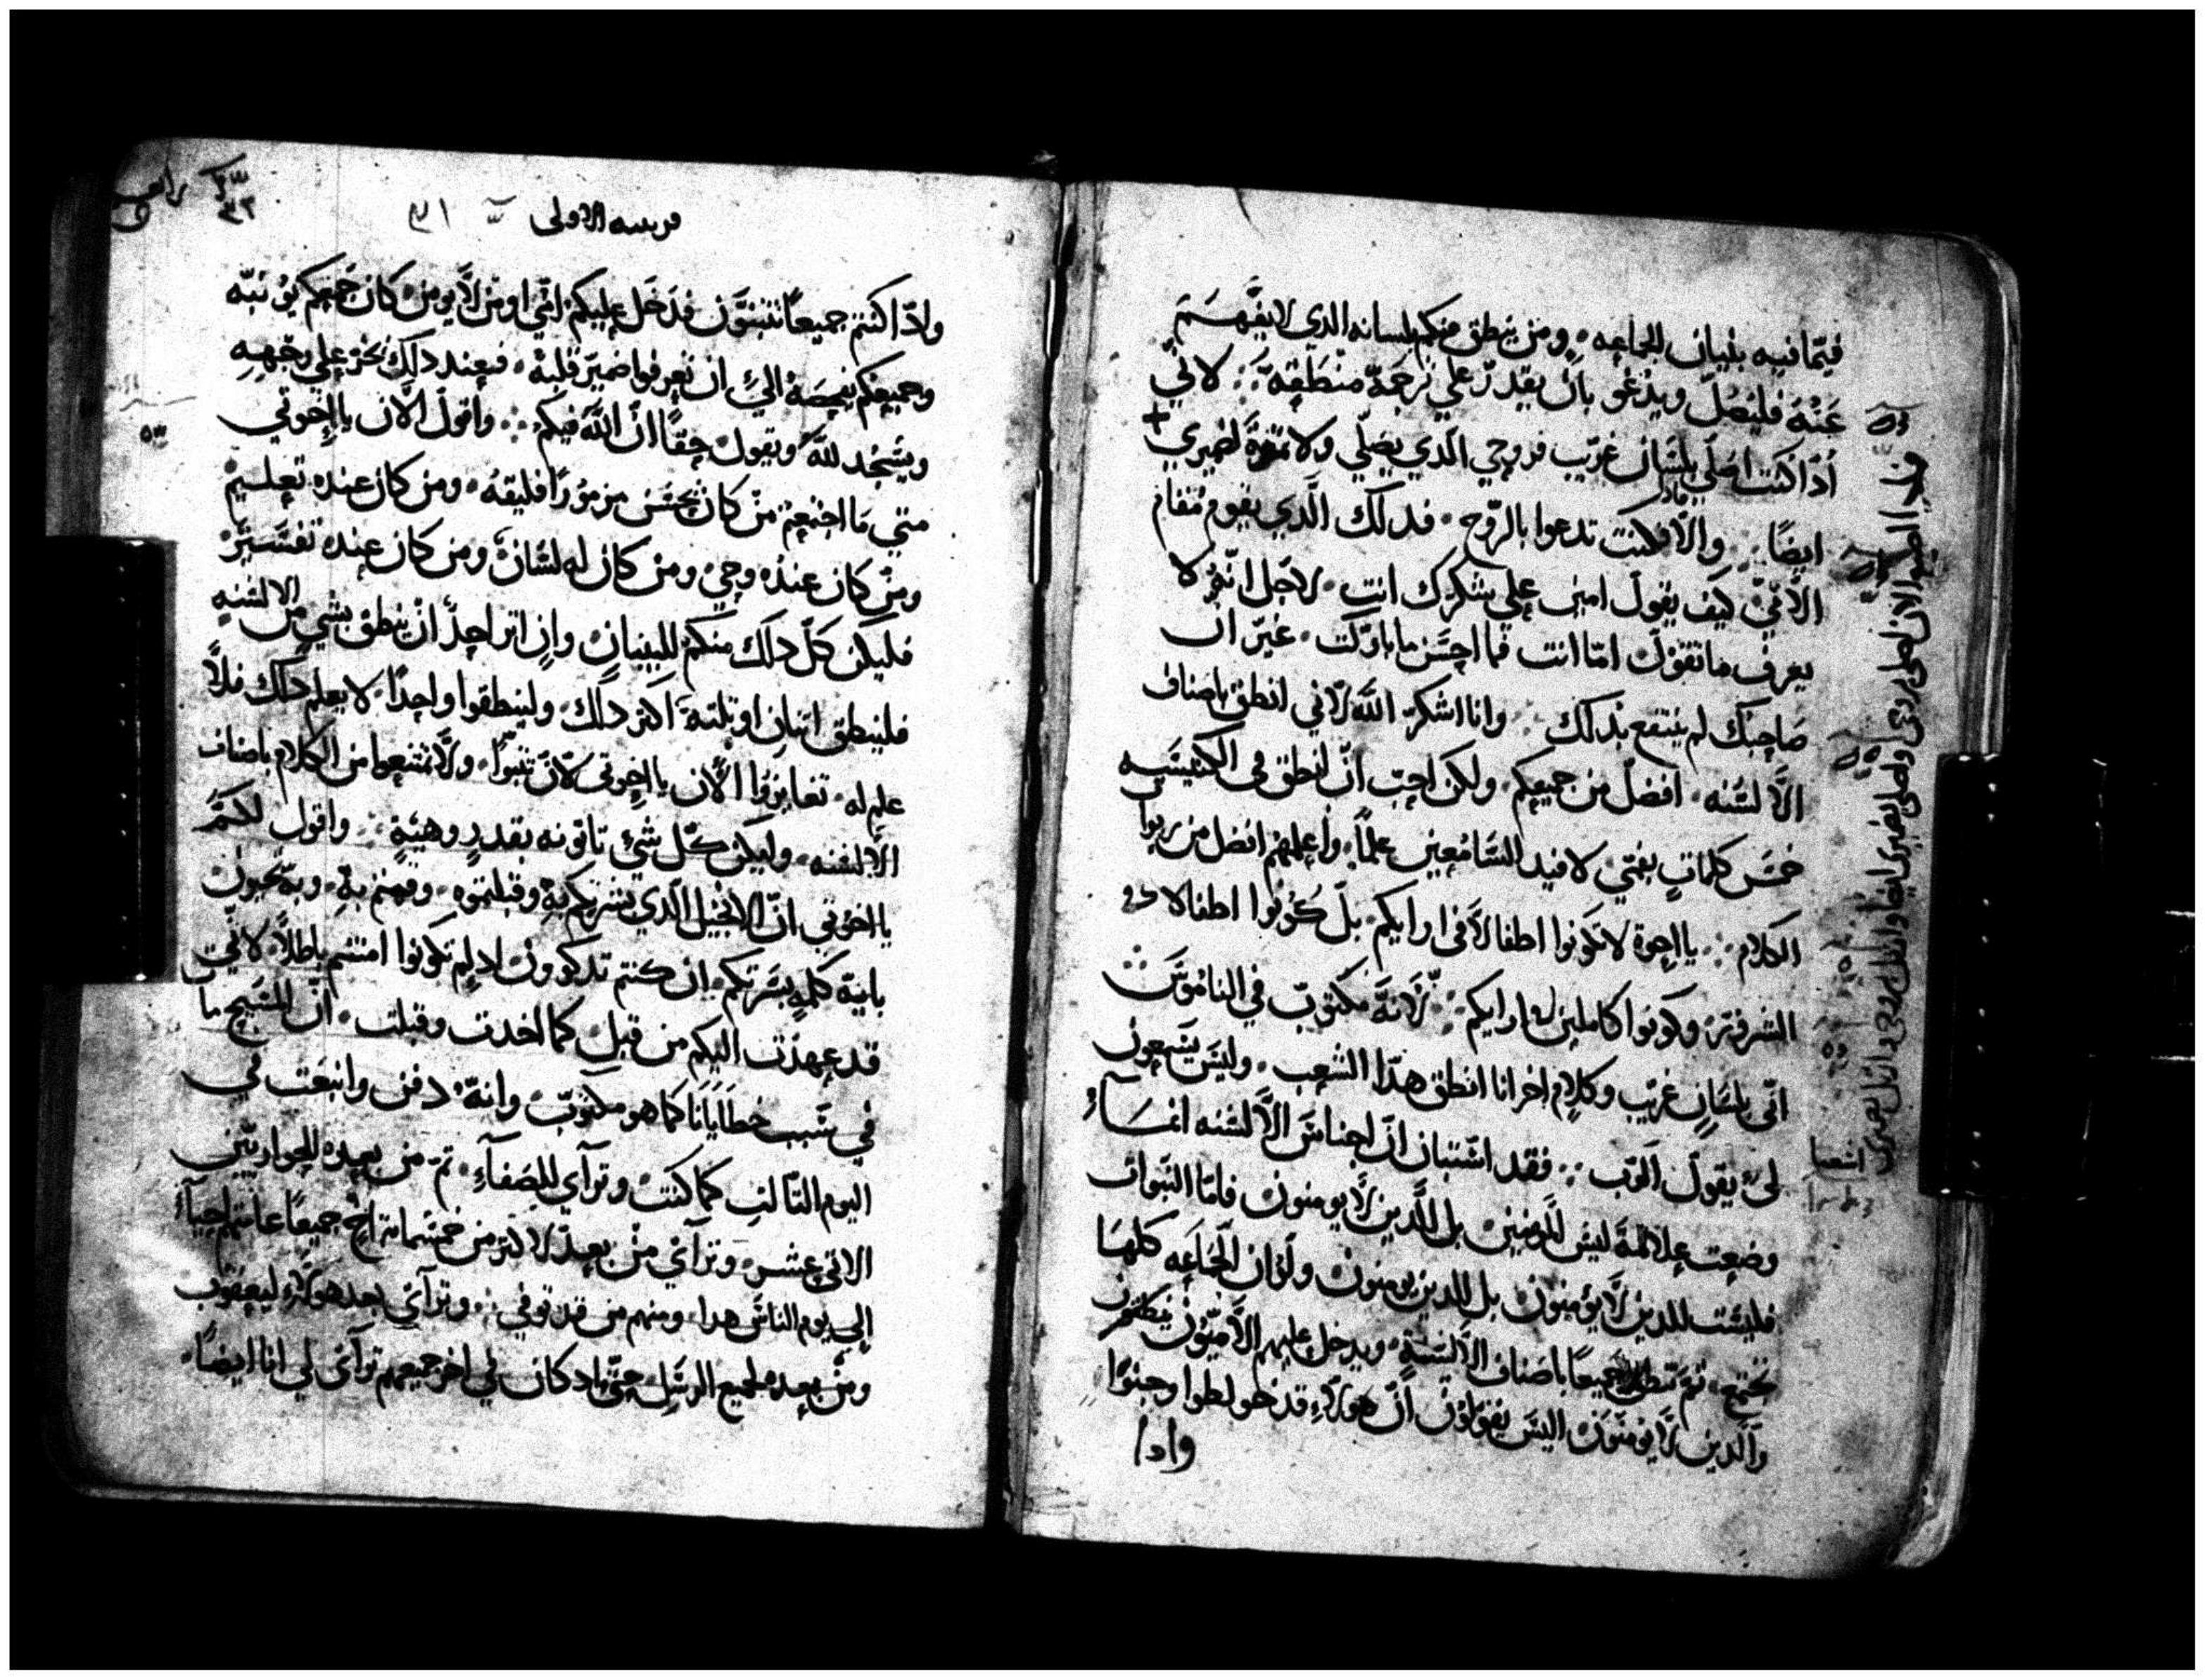 فيما فيه بنيان الجماعه ومن ينطق منكم بلسانه الدي لا يفهم
عنه فليصل ويدعو بان يقدر علي ترجمة منطقه لاني
ادا كنت اصلي بلسان غريب فروحي الدي يصلي ولا تمرة لضميري
ايضا والا فكنت تدعوا بالروح فدلك الدي يقوم مقام
الامي كيف يقول امين علي شكرك انت لاجل انه لا
يعرف ما تقول اما انت فما احسن ما باركت غير ان
صاحبك لم ينتفع بدلك وانا اشكر الله لاني انطق باصناف
الالسنه افضل من جميعكم ولكن احب ان انطق في الكنيسه
خمس كلمات بفمي لافيد السامعين علما واعلمهم افضل من ربوا
الكلام يا اخوة لا تكونوا اطفالا في ارايكم بل كونوا اطفالا دو
الشر وكونوا كاملين في ارايكم لانه مكتوب في الناموس
اني بلسان غريب وكلام اخر انا انطق هدا الشعب وليس يسمعون
لي يقول الرب فقد استبان ان اجناس الالسنه انما
وضعت علامة ليس للمومنين بل للدين لا يومنون فاما النبوات
فليست للدين لا يومنون بل للدين يومنون ولو ان الجماعه كلها
تجتمع ثم تنطق جميعا باصناف الالسنة ويدخل عليهم الاميون
والدين لا يومنون اليس يقولون ان هولاء قد خولطوا وجنوا
وادا
اشعيا
قريسه الاولى
وادا كنتم جميعا تتنبون فدخل عليكم امي او من لا يومن كان جميعكم يونبه
وجميعكم يفحصه الي ان تعرفوا ضمير قلبه فعند دلك يخر علي وجهه
ويسجد لله ويقول حقا ان الله فيكم واقول الان يا اخوتي
متي ما اجتمعتم من كان يحسن مزمورا فليقه ومن كان عنده تعليم
ومن كان عنده وحي ومن كان له لسان ومن كان عنده تفسير
فليكن كل دلك منكم للبنيان وان اتر احد ان ينطق بشي من الالسنه
فلينطق اتنان او تلتة اكتر دلك ولينطقوا واحدا لا يعلم دلك فلا
علم له تغايروا الان يا اخوتي لان تتنبوا ولا تمتنعوا من الكلام باصناف
الالسنه وليكن كل شي تاتونه بقدر وهيئة واقول لكم
يا اخوتي ان الانجيل الدي بشرتكم به وقبلتموه وقمتم به وبه تحيون
باية كلمه بشرتكم ان كنتم تدكرون اد لم تكونوا امنتم باطلا لاني
قد عهدت اليكم من قبل كما اخدت وقبلت ان المسيح مات
في سبب خطايانا كما هو مكتوب وانه دفن وانبعت في
اليوم التالت كما كتب وتراي للصفاء تم من بعده للحواريين
الاتني عشر وتراي من بعد لاكتر من خمسمائة اخ جميعا عامتهم احياء
الي يوم الناس هدا ومنهم من قد توفي وتراي بعد هولاء ليعقوب
ومن بعده لجميع الرسل حتي اد كان في اخر جميعهم تراي لي انا ايضا